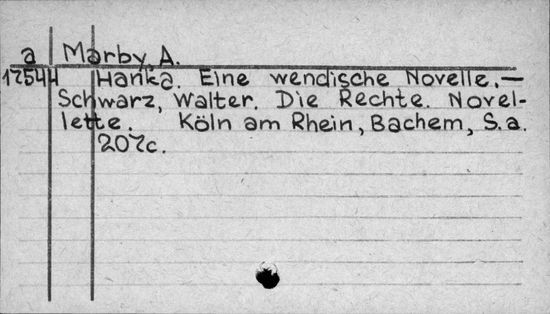 a Marby, A.
12544 Hanka. Eine wendische Novelle. —
Schwarz, Walter. Die Rechte. Novel-
lette. Köln am Rhein, Bachem, S.a.
207c.